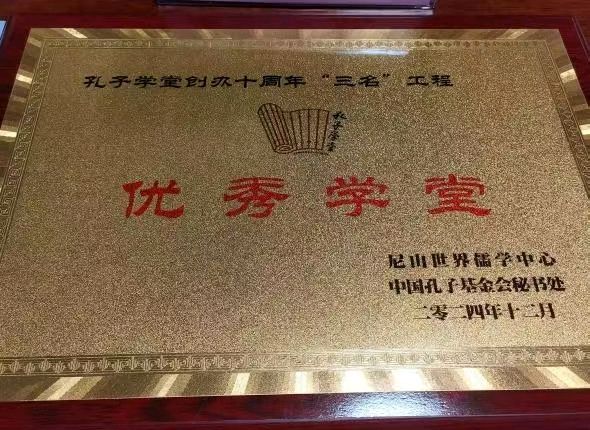 孔子学堂创办十周年“三名”工程
孔子学堂
优秀学堂
尼山世界儒学中心
中国孔子基金会秘书处
二零二四年十二月